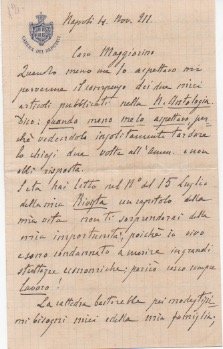 CAMERA DEI DEPUTATI
Napoli 4. Nov. 211.
Caro Maggiorino
Quando meno me lo aspettavo mi
pervenne il compenso dei due miei
articoli pubblicati nella N. Antologia
Dico: quando meno melo aspettavo per
chè vedendolo insolitamente tardare
lo chiesi due volte all'Amm. e non
ebbi risposta.
Se tu hai letto nel N.º del 15 Luglio
della mia Rivista un capitolo della
mia vita non ti sorprenderai della
mia importunità, poichè io vivo
e sono condannato a morire in grandi
strettezze economiche; perciò cerco sempre
lavoro!
La cattedra basterebbe pei modestissimi
mi bisogni miei e della mia famiglia.